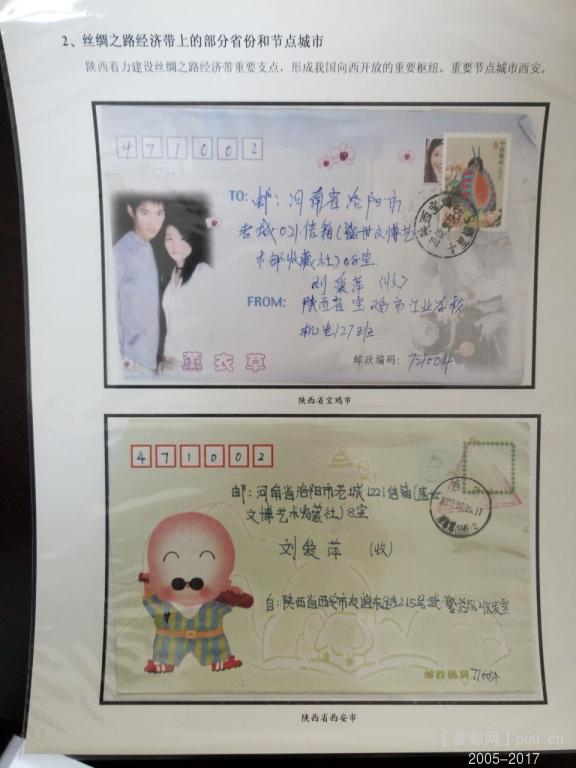 2、丝绸之路经济带上的部分省份和节点城市
陕西着力建设丝绸之路经济带重要支点，形成我国向西开放的重要枢纽。重要节点城市西安。
471002
中国邮政
TO: 邮：河南省洛阳市
老城021信箱(盛世文博艺
术部收藏社)08室
刘爱萍 (收)
FROM: 陕西省宝鸡市工业学校
机电127班
薰衣草
邮政编码：721004
陕西省宝鸡市
471002
邮：河南省洛阳市老城1221信箱(盛世
文博艺术收藏社)8室
刘爱萍 (收)
自：陕西省西安市友谊东路215号
邮政编码 710054
陕西省西安市
【普邮网】puu.cn
2005-2017